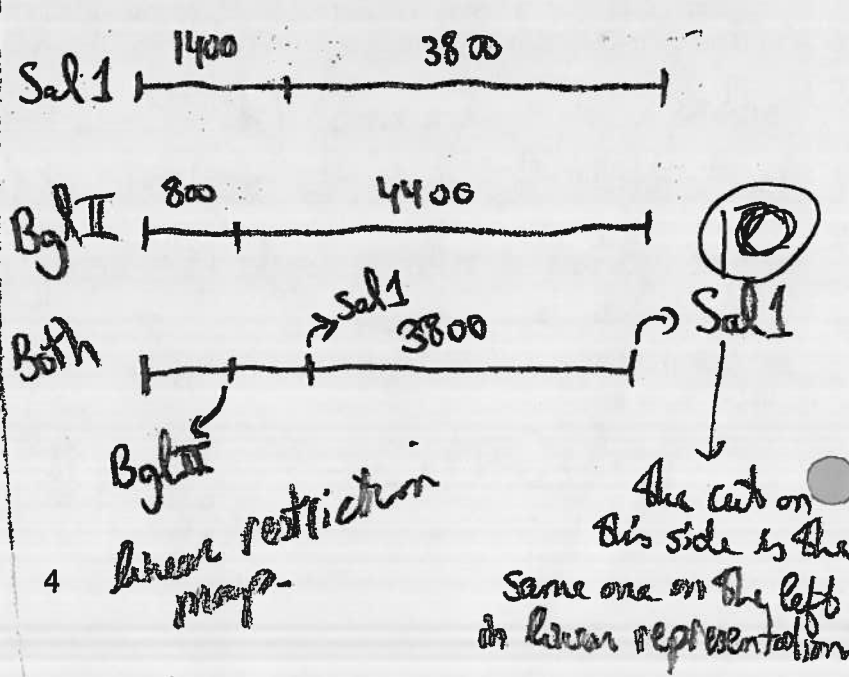 1400 3800
Sal1
800 4400
BglII
Sal1
Both 3800 Sal1
BglII
linear restriction
map-
the cut on
this side is the
same one on the left
in linear representation
4